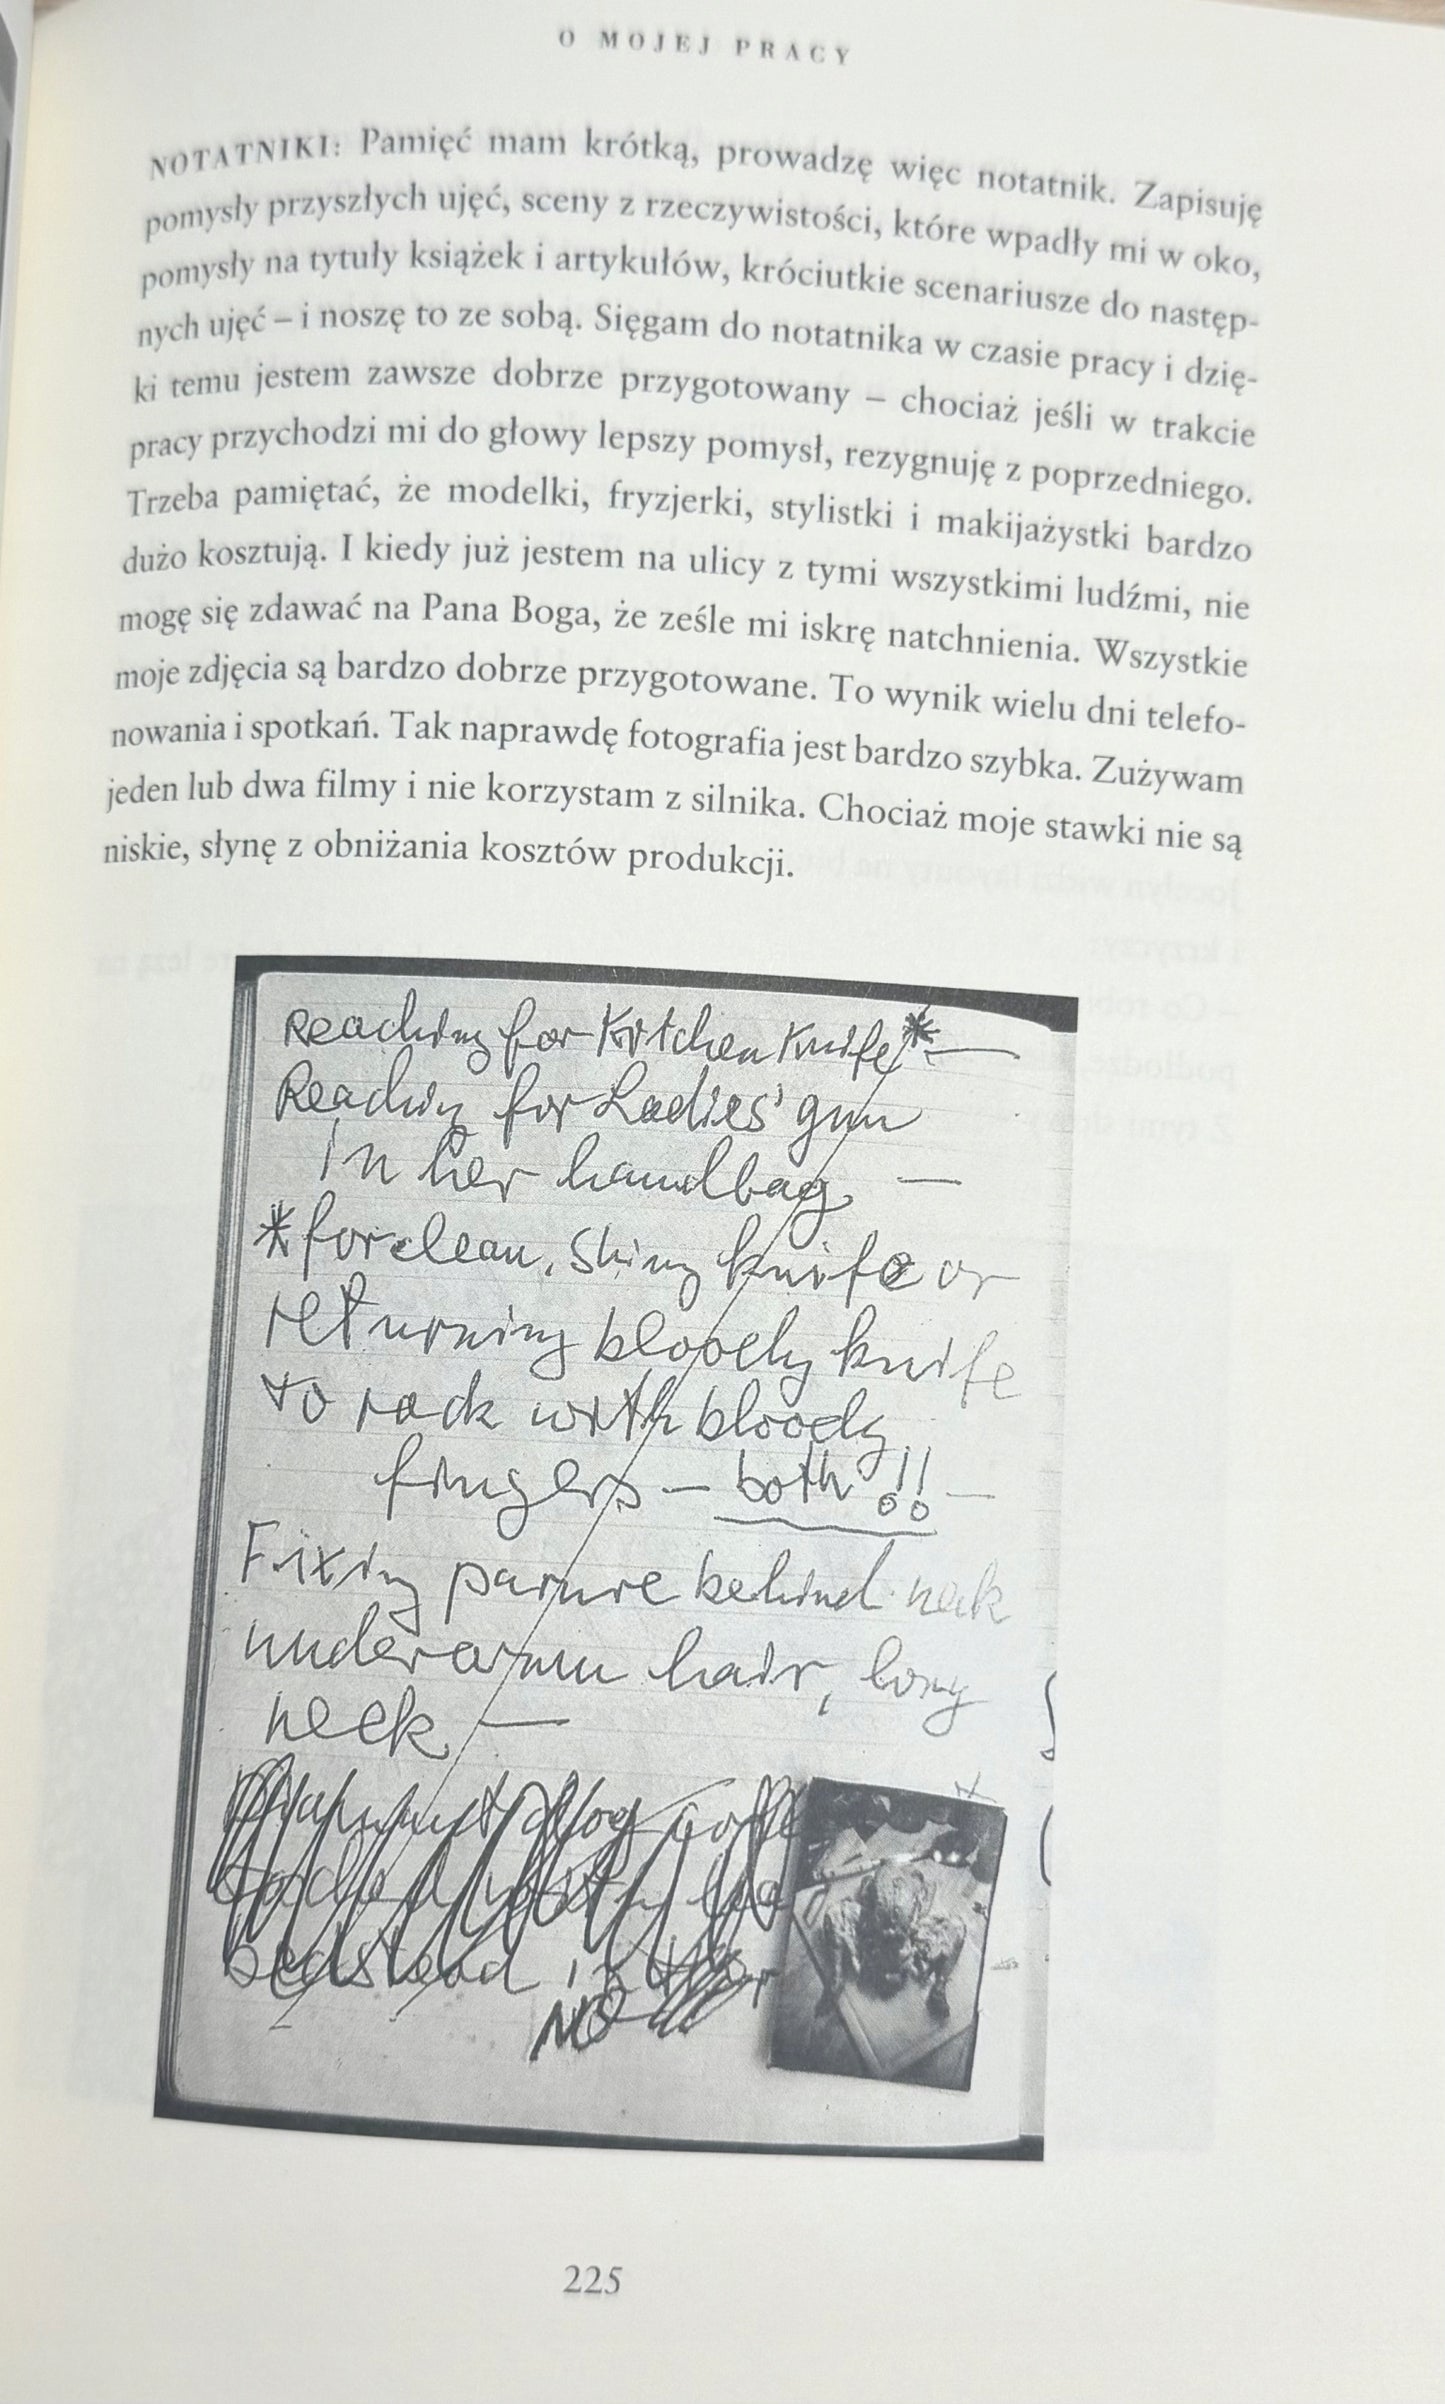 O MOJEJ PRACY
NOTATNIKI: Pamięć mam krótką, prowadzę więc notatnik. Zapisuję
pomysły przyszłych ujęć, sceny z rzeczywistości, które wpadły mi w oko,
pomysły na tytuły książek i artykułów, króciutkie scenariusze do następ-
nych ujęć – i noszę to ze sobą. Sięgam do notatnika w czasie pracy i dzię-
ki temu jestem zawsze dobrze przygotowany – chociaż jeśli w trakcie
pracy przychodzi mi do głowy lepszy pomysł, rezygnuję z poprzedniego.
Trzeba pamiętać, że modelki, fryzjerki, stylistki i makijażystki bardzo
dużo kosztują. I kiedy już jestem na ulicy z tymi wszystkimi ludźmi, nie
mogę się zdawać na Pana Boga, że ześle mi iskrę natchnienia. Wszystkie
moje zdjęcia są bardzo dobrze przygotowane. To wynik wielu dni telefo-
nowania i spotkań. Tak naprawdę fotografia jest bardzo szybka. Zużywam
jeden lub dwa filmy i nie korzystam z silnika. Chociaż moje stawki nie są
niskie, słynę z obniżania kosztów produkcji.
Reaching for Kitchen Knife* —
Reaching for Ladies' gun
in her handbag —
* for clean, shiny knife or
returning bloody knife
to rack with bloody
fingers – both!! —
Fixing parure behind neck
underarm hair, long
neck —
bedstead in
NO
225